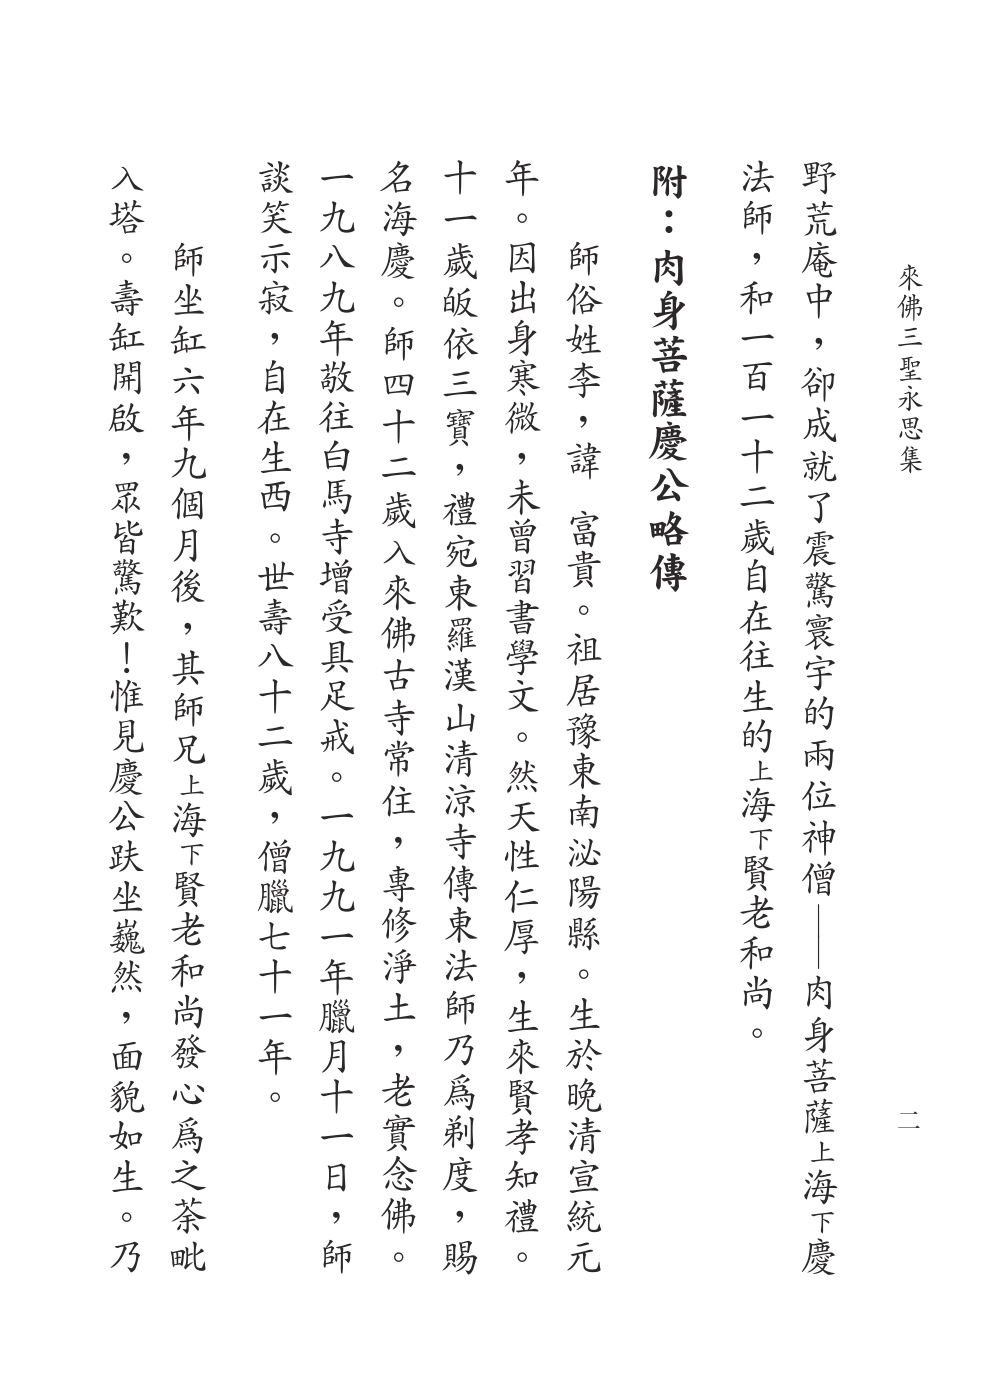 來佛三聖永思集
二
野荒庵中，卻成就了震驚寰宇的兩位神僧——肉身菩薩上海下慶
法師，和一百一十二歲自在往生的上海下賢老和尚。
附：肉身菩薩慶公略傳
師俗姓李，諱　富貴。祖居豫東南泌陽縣。生於晚清宣統元
年。因出身寒微，未曾習書學文。然天性仁厚，生來賢孝知禮。
十一歲皈依三寶，禮宛東羅漢山清涼寺傳東法師乃爲剃度，賜
名海慶。師四十二歲入來佛古寺常住，專修淨土，老實念佛。
一九八九年敬往白馬寺增受具足戒。一九九一年臘月十一日，師
談笑示寂，自在生西。世壽八十二歲，僧臘七十一年。
師坐缸六年九個月後，其師兄上海下賢老和尚發心爲之荼毗
入塔。壽缸開啟，眾皆驚歎！惟見慶公趺坐巍然，面貌如生。乃